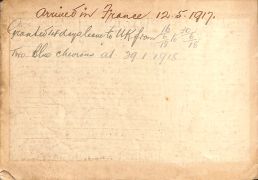 arrived in France 12.5.1917.
Granted 14 days leave to UK from 16 to
Two blue chevrons at 29 1 1918